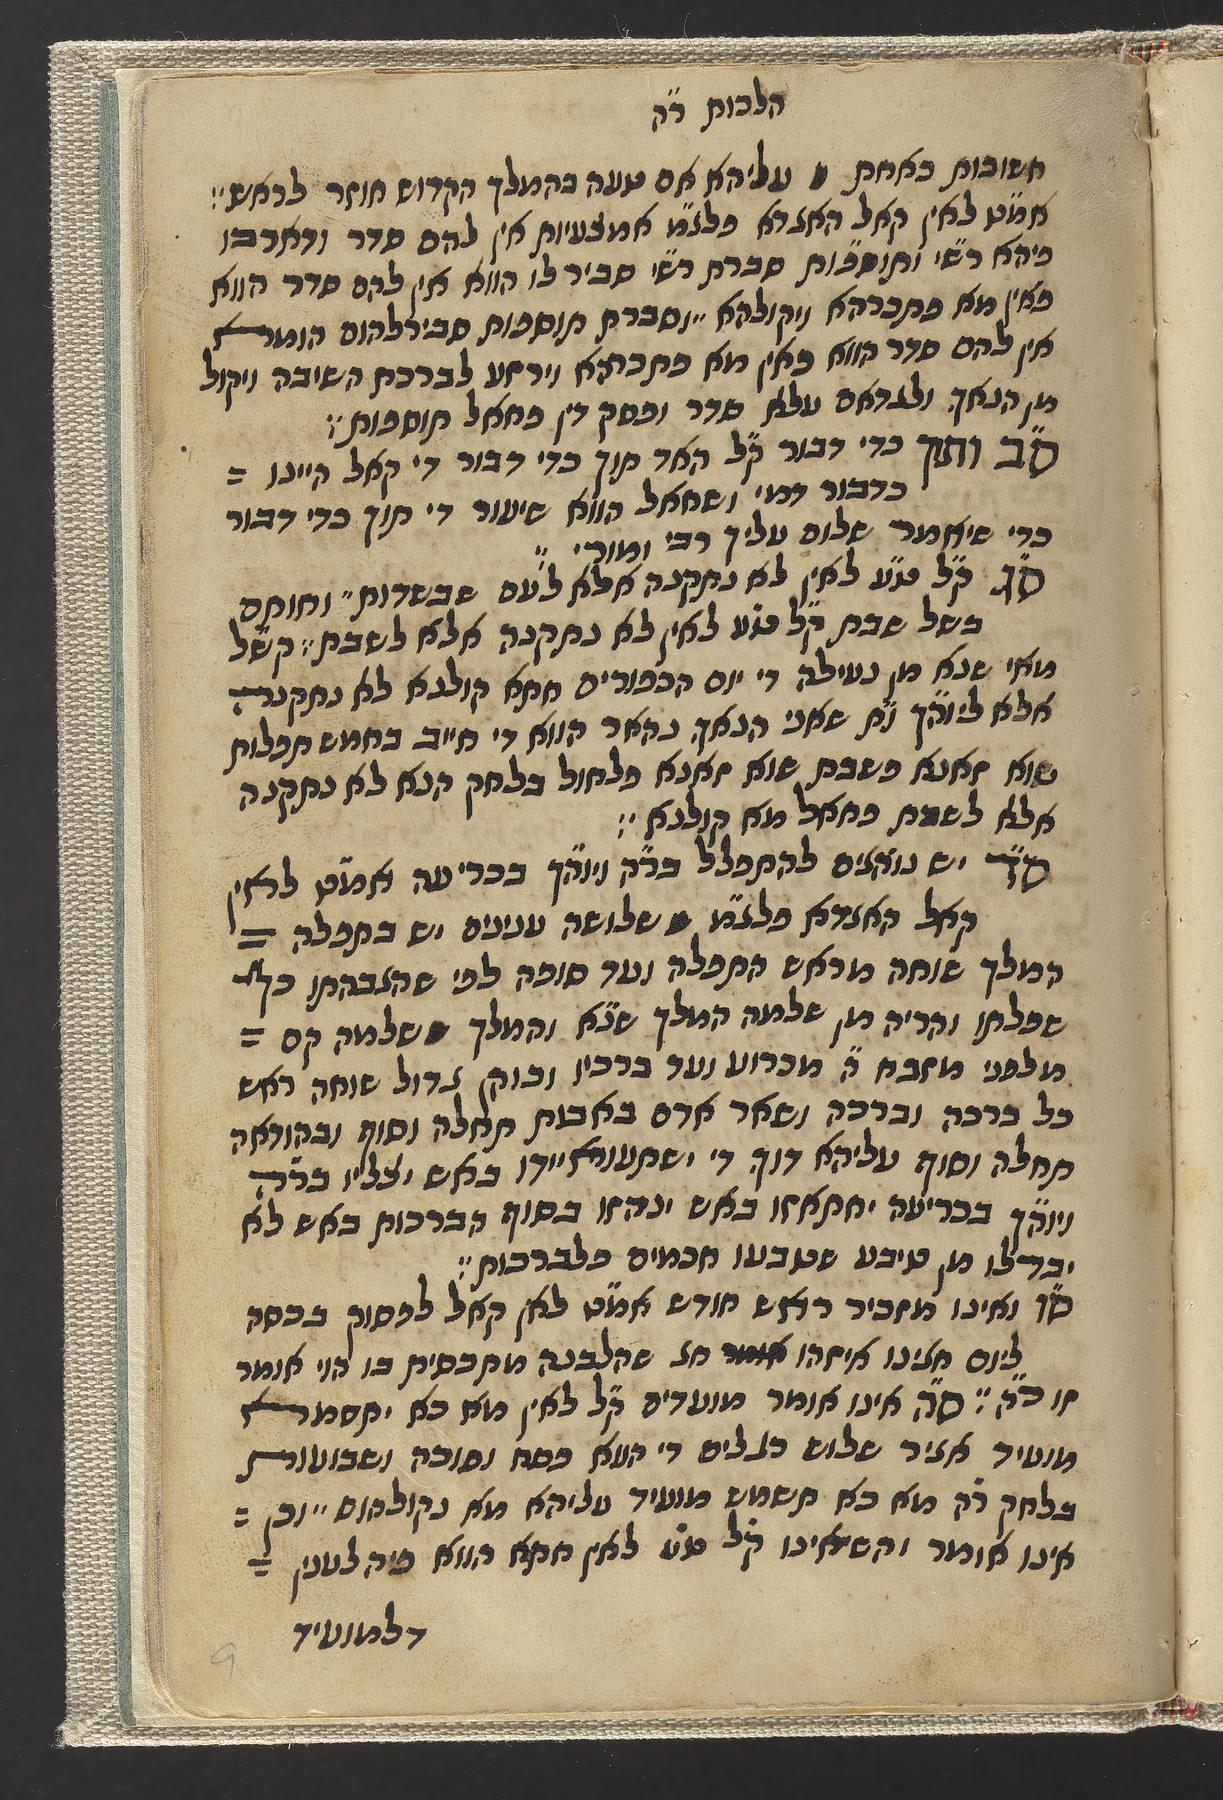 הלכות ר״ה
חשובות כאחת עליהא אם טעה בהמלך הקדוש חוזר לראש :
אמ״ט לאין קאל האגדא פלגמ׳ אמצעיות אין להם סדר ודארבו
פיהא רש״י ותוספ״ות סברת רש״י סביר לו הווא אין להם סדר הווא
פאין מא פתכרהא ויקולהא ״ וסברת תוספות סבירלהום הומא
אין להם סדר הווא פאין מא פתכרהא וירזע לברכת השיבה ויקול
מן הנאך ולגדאם עלא סדר ופסק דין פחאל תוספות :
ס״ב ותוך כדי דבור ק״ל האד תוך כדי דבור די קאל היינו =
כדבור דמי ושחאל הווא שיעור די תוך כדי דבור
כדי שיאמר שלום עליך רבי ומורי ״
ס״ג ק״ל ט״ע לאין לא נתקנה אלא לעם שבשדות ״ וחותם
בשל שבת ק״ל ט״ע לאין לא נתקנה אלא לשבת : קש״ל
מאי שנא מן נעילה די יום הכפורים חתא קולנא לא נתקנה
אלא ליוה״ך ות׳ שאני הנאך נהאר הווא די חייב בחמש תפלות
שוא זאנא פשבת שוא זאנא פלחול בלחק הנא לא נתקנה
אלא לשבת פחאל מא קולנא :
ס״ד יש נוהגים להתפלל בר״ה ויוה״ך בכריעה אמ״ט לאין
קאל האגדא פלגמ׳ שלושה ענינים יש בתפלה =
המלך שוחה מראש התפלה ועד סופה לפי שהגבהתו כך
שפלתו והריה מן שלמה המלך שנ״א והמלך שלמה קם =
מלפני מזבח ה׳ מכרוע ועד ברכיו וכוהן גדול שוחה ראש
כל ברכה וברכה ושאר אדם באבות תחלה וסוף ובהודאה
תחלה וסוף עליהא דוך די ישתענאיידו באש יצליו בר״ה
ויוה״ך בכריעה יחתאזו באש ינהזו בסוף הברכות באש לא
יבדלו מן טיבע שטבעו חכמים פלברכות :
ס״ו ואינו מזכיר ראש חודש אמ״ט לאן קאל לפסוק בכסה
ליום חגינו איזהו חג שהלבנה מתכסית בו הוי אומר
זו ר״ה : ס״ה אינו אומר מועדים ק״ל לאין מא כא יתסמא
מועיד אגיר שלוש רגלים די הומא פסח וסוכה ושבועות
בלחק ר״ה מא כא תשמש מועיד עליהא מא נקולהום ״ וכן =
אינו אומר והשיאינו ק״ל ט״ע לאין חתא הווא פיה לענין =
דלמועיד
9